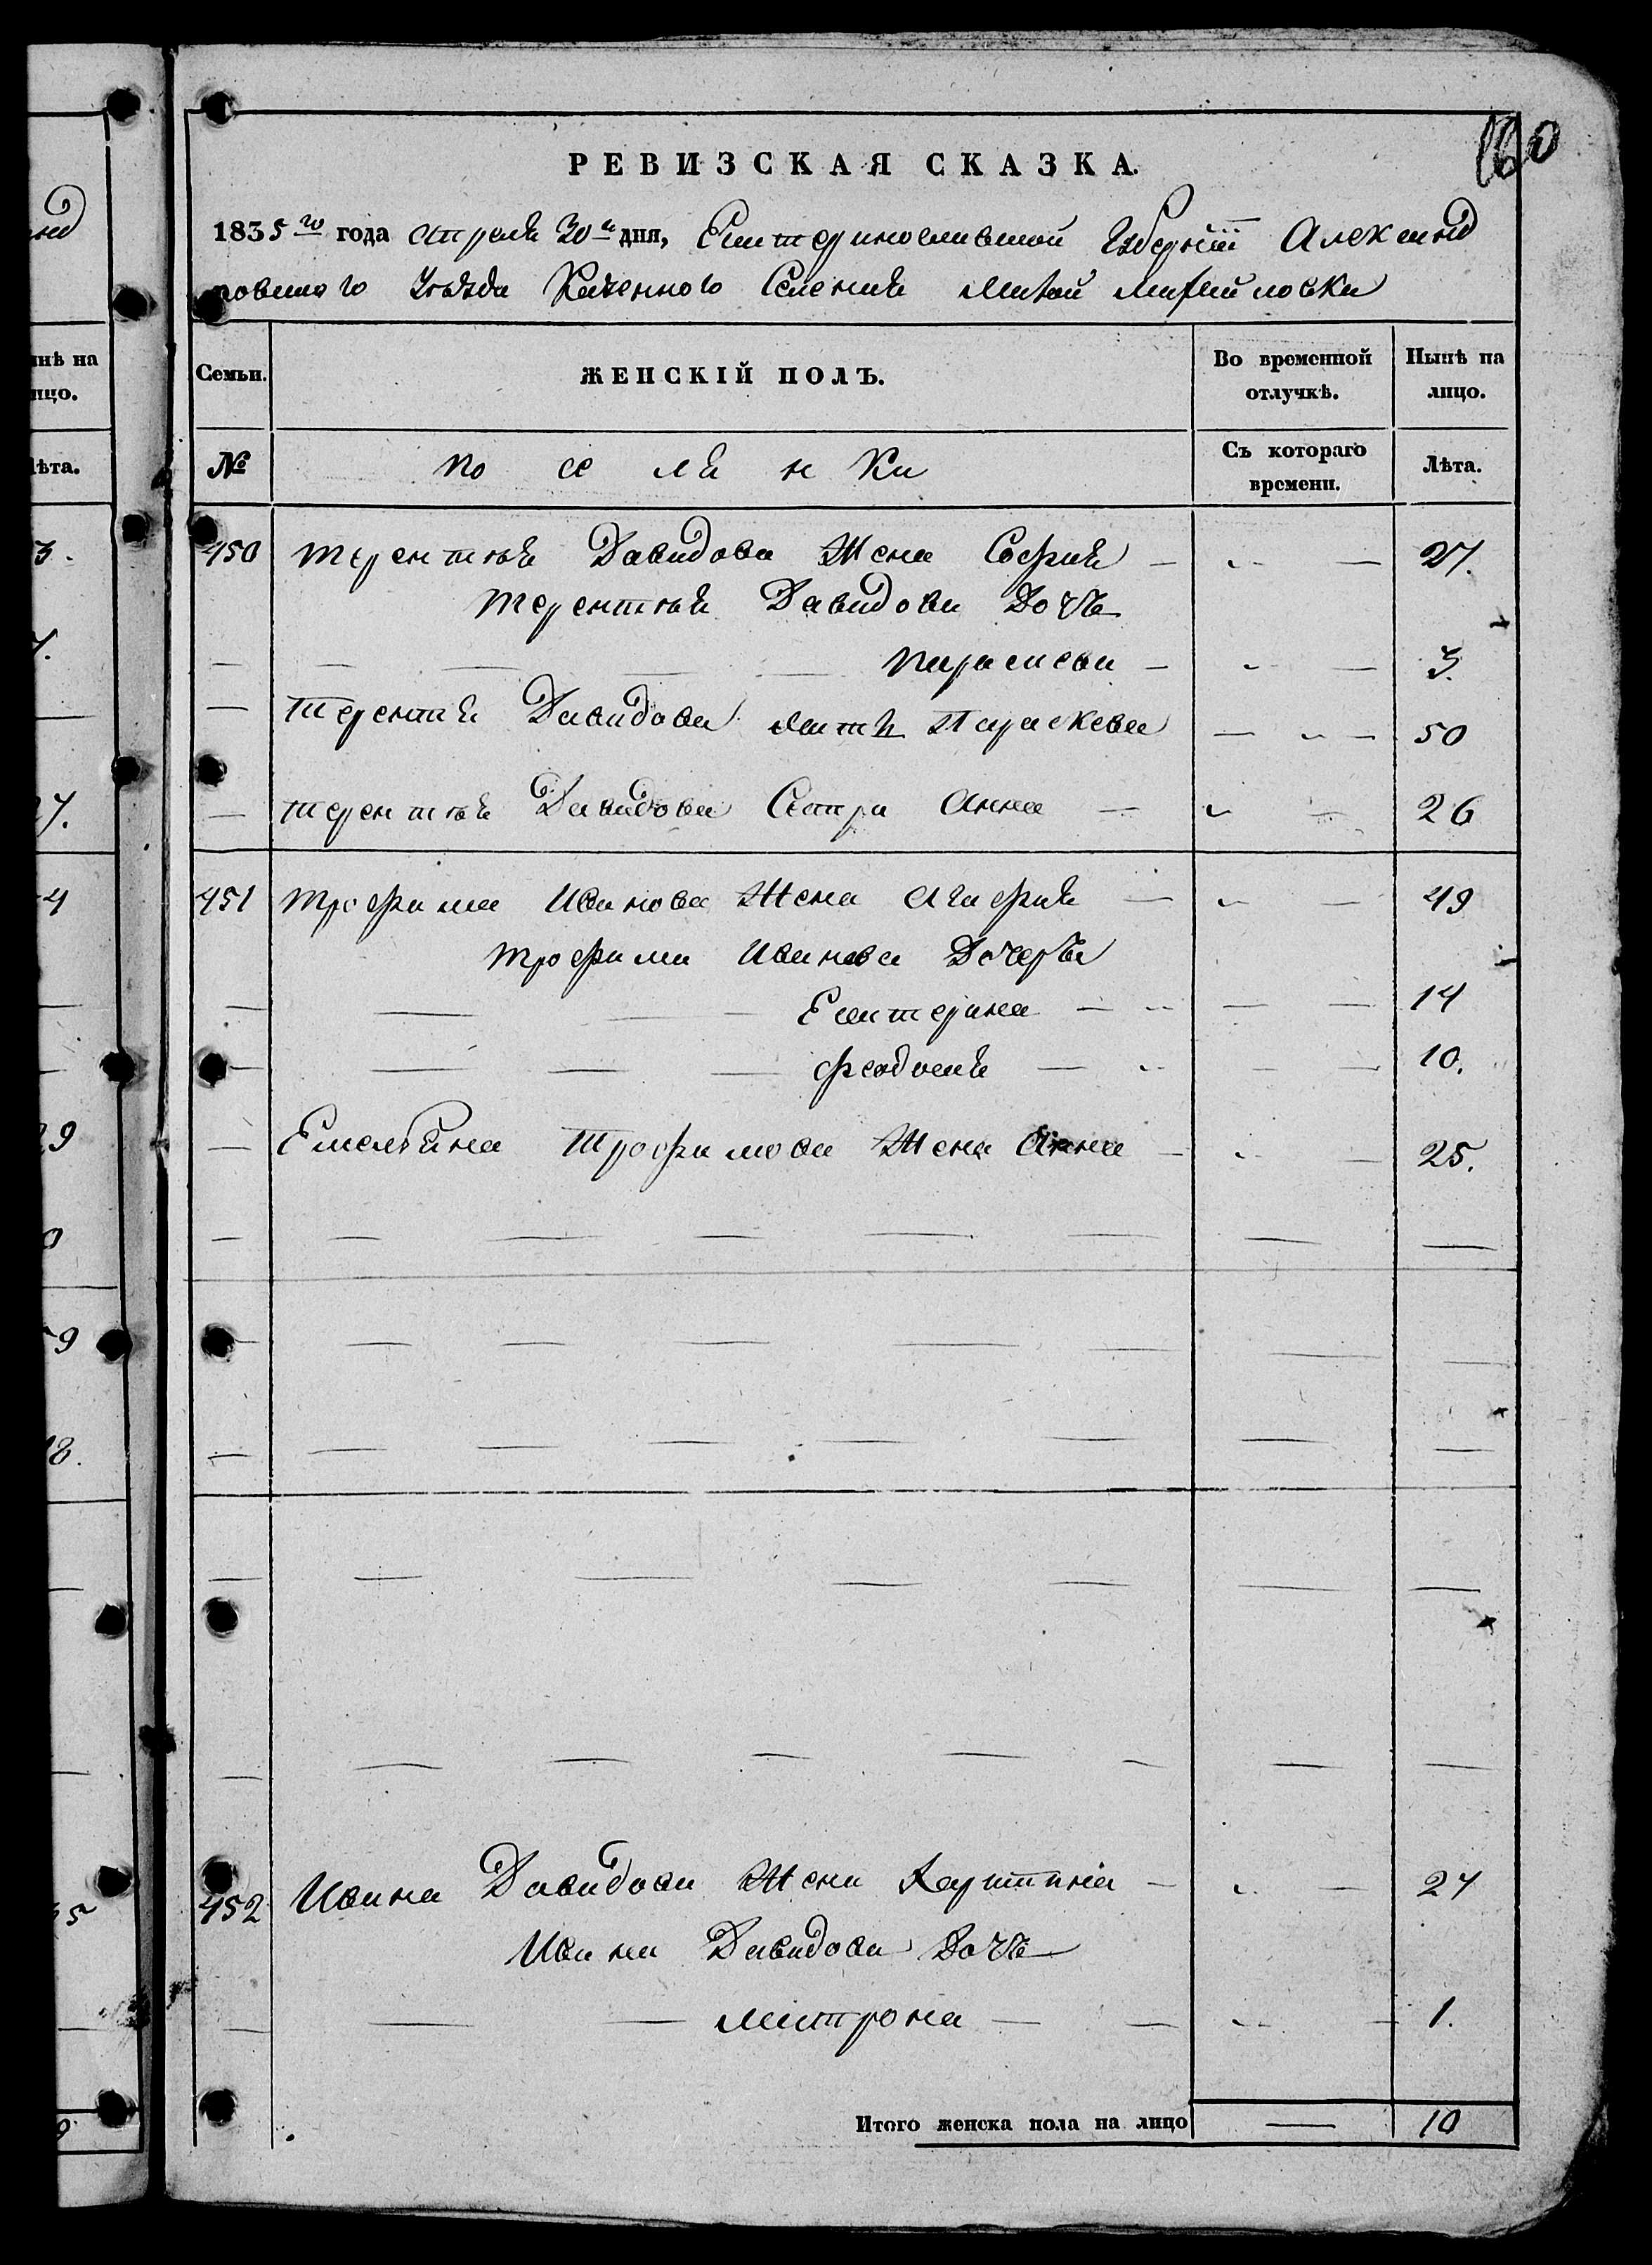 160
РЕВИЗСКАЯ СКАЗКА.
1835го года Апреля 30го дня, Екатеринославской Губернїи Александ
ровскаго Уѣзда Казенного Селенія Малой Михайловки
Семьи.
ЖЕНСКІЙ ПОЛЪ.
Во временной отлучкѣ.
Нынѣ на лицо.
№
по се ля н ки
Съ котораго времени.
Лѣта.
450 терентѣя Давидова Жена София — 27.
терентѣя Давидова Дочь
Параскева — 3.
Терентия Давидова мать Параскева — 50
терентѣя Давидова Сестра Анна — 26
451 трофима Иванова Жена Агафия — 49
трофима Иванова Дочеръи
Екатерина — 14
феодосия — 10.
Емельяна Трофимова Жена Анна — 25.
452 Ивана Давидова Жена Харитина — 24
Ивана Давидова Дочь
матрона — 1.
Итого женска пола на лицо — 10